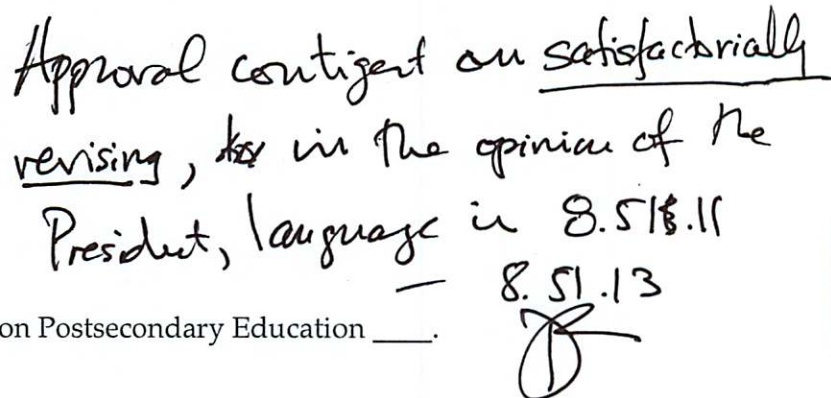 Approval contigent on satisfactorially
revising, in the opinion of the
President, language in 8.51.11
— 8.51.13
on Postsecondary Education ____.